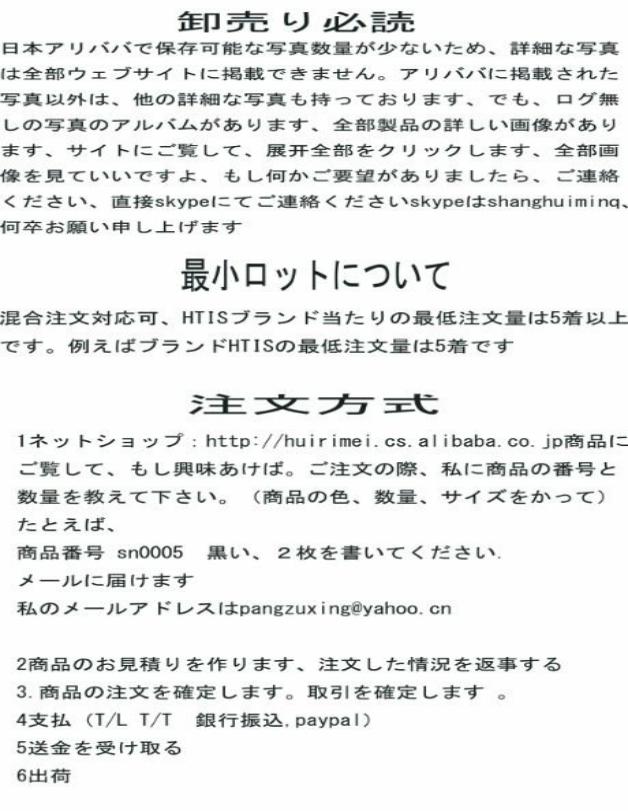 卸売り必読
日本アリババで保存可能な写真数量が少ないため、詳細な写真
は全部ウェブサイトに掲載できません。アリババに掲載された
写真以外は、他の詳細な写真も持っております、でも、ログ無
しの写真のアルバムがあります、全部製品の詳しい画像があり
ます、サイトにご覧して、展开全部をクリックします、全部画
像を見ていいですよ、もし何かご要望がありましたら、ご連絡
ください、直接skypeにてご連絡くださいskypeはshanghuiminq、
何卒お願い申し上げます
最小ロットについて
混合注文対応可、HTISブランド当たりの最低注文量は5着以上
です。例えばブランドHTISの最低注文量は5着です
注文方式
1ネットショップ：http://huirimei.cs.alibaba.co.jp商品に
ご覧して、もし興味あけば。ご注文の際、私に商品の番号と
数量を教えて下さい。（商品の色、数量、サイズをかって）
たとえば、
商品番号 sn0005 黒い、２枚を書いてください.
メールに届けます
私のメールアドレスはpangzuxing@yahoo.cn
2商品のお見積りを作ります、注文した情況を返事する
3.商品の注文を確定します。取引を確定します 。
4支払（T/L T/T 銀行振込,paypal）
5送金を受け取る
6出荷